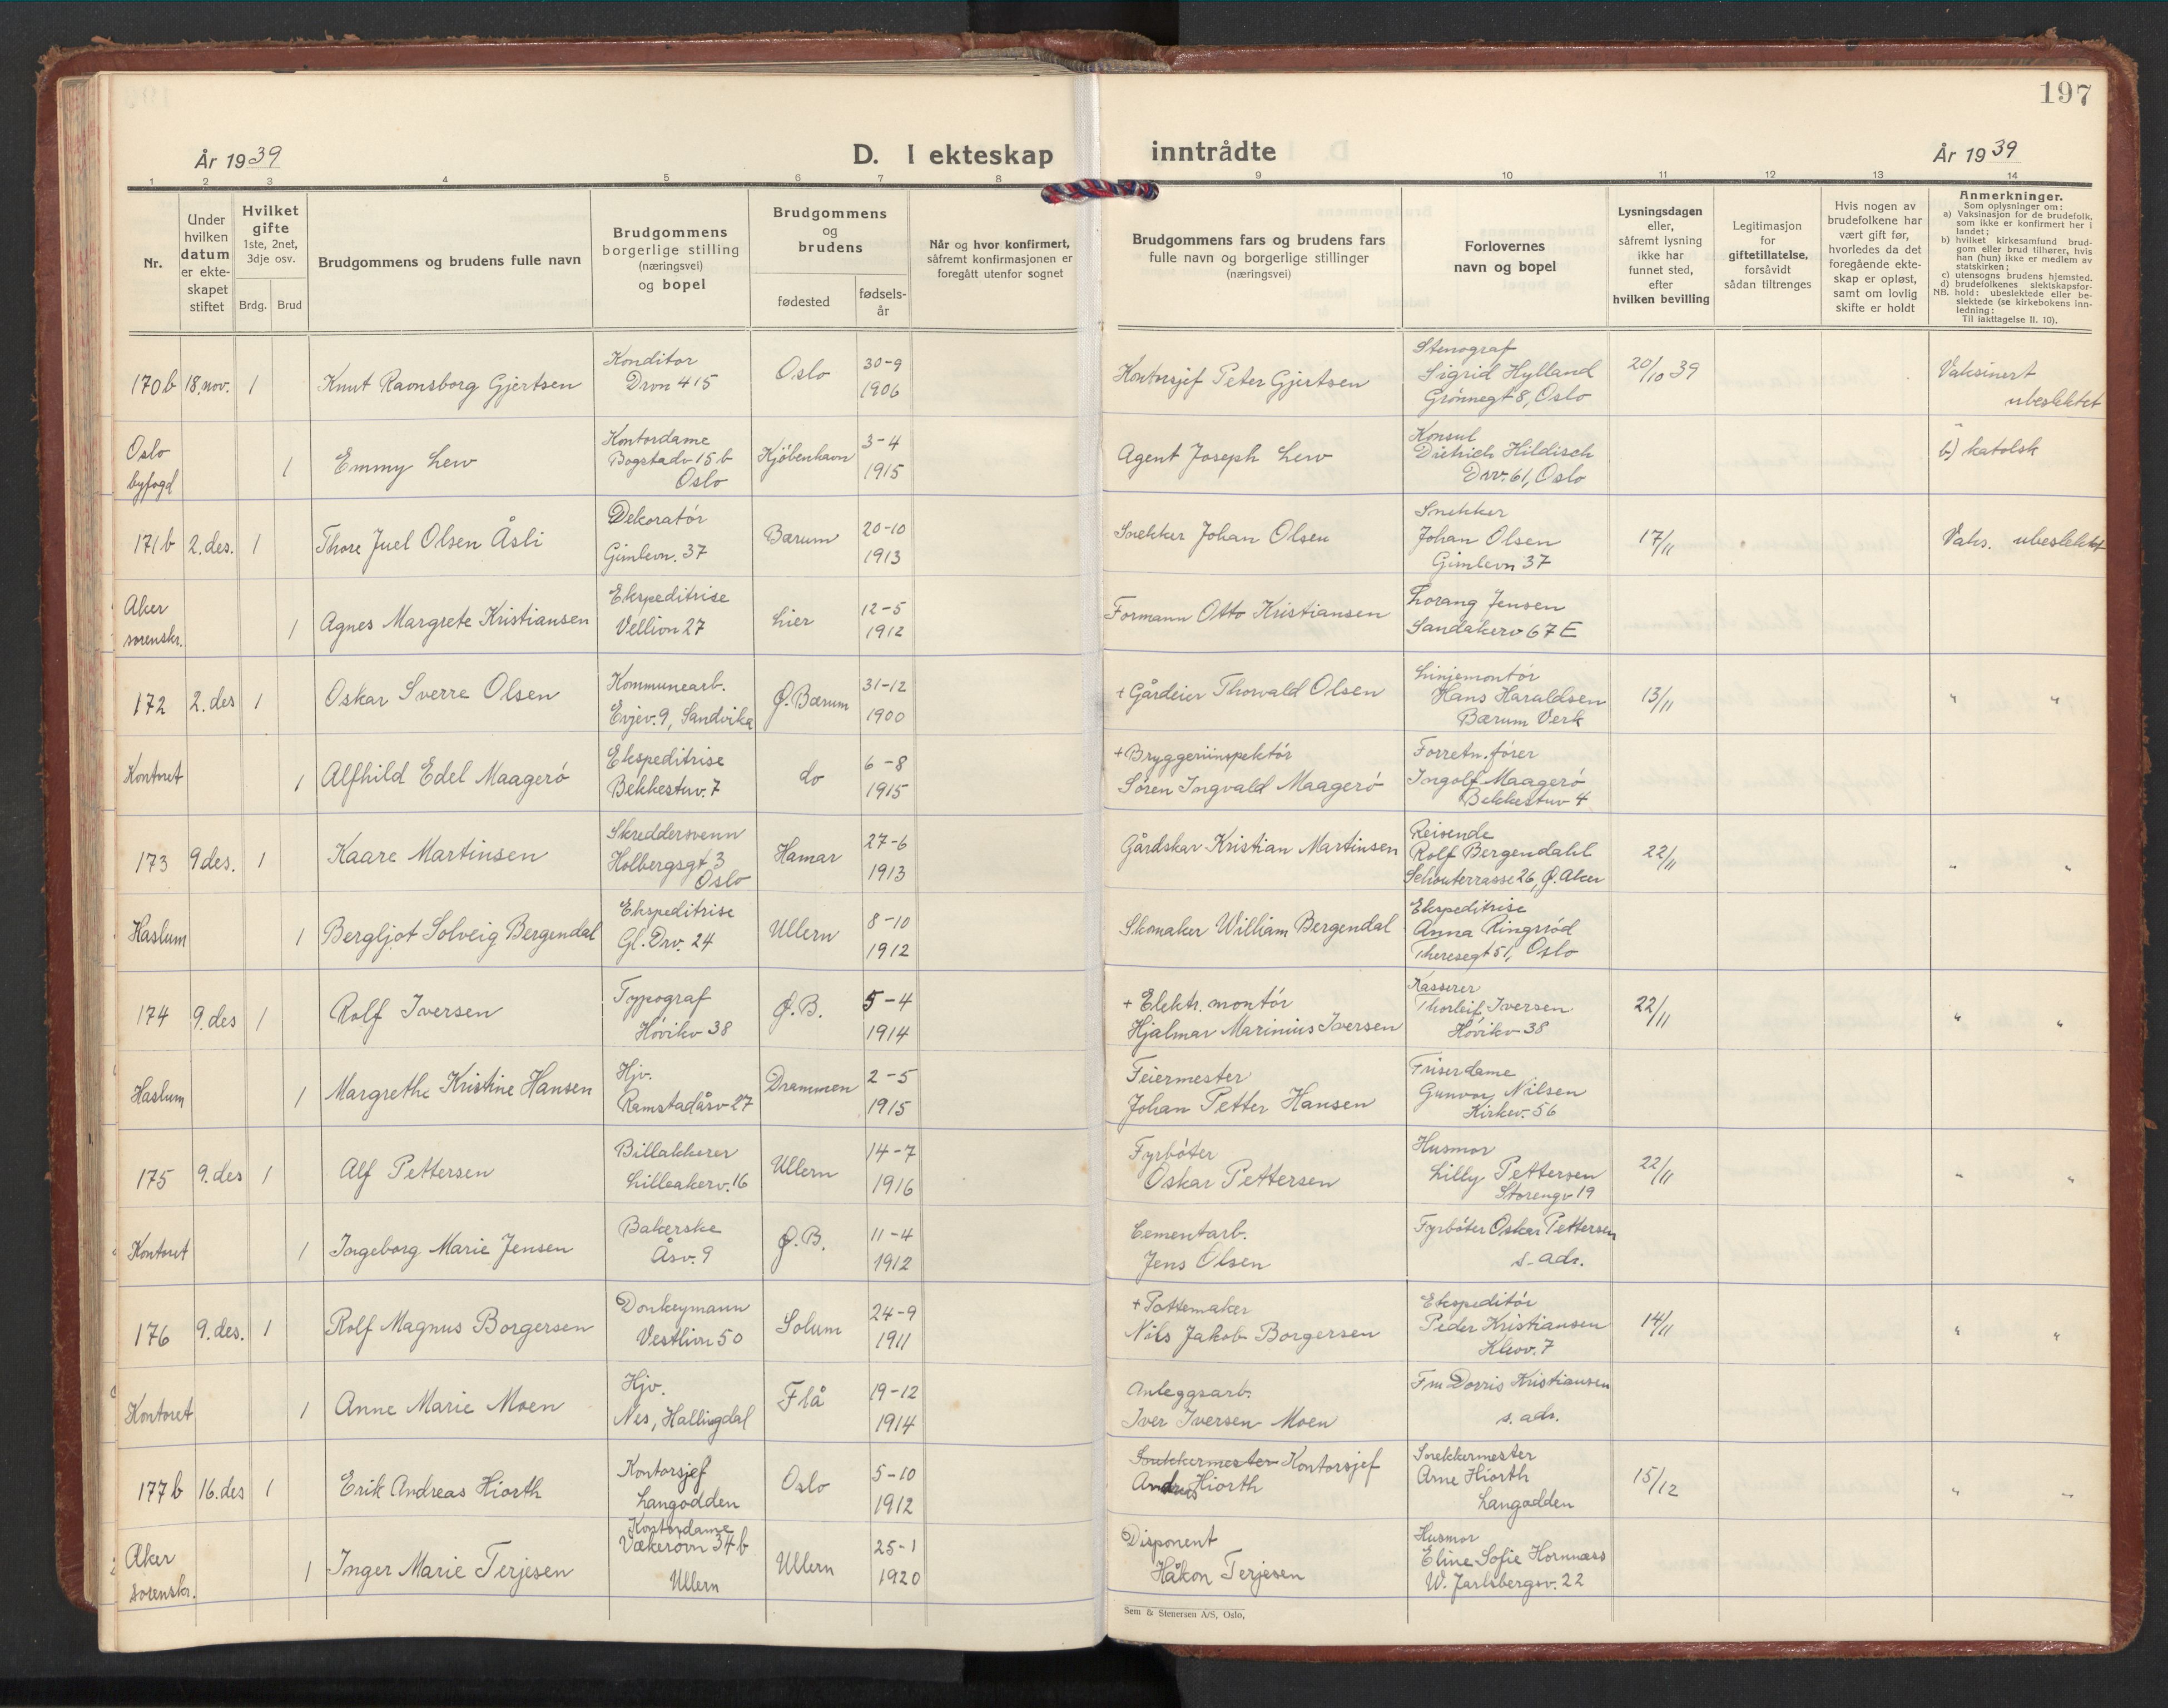 197
År 1939
D. I ekteskap
inntrådte
År 1939
1 2 3 4 5 6 7 8 9 10 11 12 13 14
Nr.
Under
hvilken
datum
er ekte-
skapet
stiftet
Hvilket
gifte
1ste, 2net,
3dje osv.
Brdg. Brud
Brudgommens og brudens fulle navn
Brudgommens
borgerlige stilling
(næringsvei)
og bopel
Brudgommens
og
brudens
fødested
fødsels-
år
Når og hvor konfirmert,
såfremt konfirmasjonen er
foregått utenfor sognet
Brudgommens fars og brudens fars
fulle navn og borgerlige stillinger
(næringsvei)
Forlovernes
navn og bopel
Lysningsdagen
eller,
såfremt lysning
ikke har
funnet sted,
efter
hvilken bevilling
Legitimasjon
for
giftetillatelse,
forsåvidt
sådan tiltrenges
Hvis nogen av
brudefolkene har
vært gift før,
hvorledes da det
foregående ekte-
skap er opløst,
samt om lovlig
skifte er holdt
Anmerkninger.
Som oplysninger om:
a) Vaksinasjon for de brudefolk,
som ikke er konfirmert her i
landet;
b) hvilket kirkesamfund brud-
gom eller brud tilhører, hvis
han (hun) ikke er medlem av
statskirken;
c) utensogns brudens hjemsted.
d) brudefolkenes slektskapsfor-
hold: ubeslektede eller be-
slektede (se kirkebokens inn-
ledning:
NB.
Til iakttagelse II. 10).
170b 18. nov. 1 Knut Ramsborg Gjertsen
Konditor
Drvn 415
Oslo
30-9
1906
Kontorsjef Peter Gjertsen
Stenograf
Sigrid Hylland
Grønnegt 8, Oslo
20/10 39
Vaksinert
ubeslektet
Oslo
byfogd
1 Emmy Lew
Kontordame
Bogstadv 15b
Oslo
Kjøbenhavn
3-4
1915
Agent Joseph Lew
Konsul
Dietrich Hildisch
Drv. 61, Oslo
b) katolsk
171b 2. des. 1 Thore Juel Olsen Åsli
Dekoratør
Gimlevn. 37
Bærum
20-10
1913
Snekker Johan Olsen
Snekker
Johan Olsen
Gimlevn 37
17/11
Vaks. ubeslektet
Aker
sorenskr.
1 Agnes Margrete Kristiansen
Ekspeditrise
Vellivn 27
Lier
12-5
1912
Formann Otto Kristiansen
Thorang Jensen
Sandakerv 67 E
172 2. des 1 Oskar Sverre Olsen
Kommunearb.
Evjev. 9, Sandvika
Ø. Bærum
31-12
1900
+ Gårdeier Thorvald Olsen
Linjemontør
Hans Haraldsen
Bærum Verk
13/11
" "
Kontoret
1 Alfhild Edel Maagerø
Ekspeditrise
Bekkestuv. 7
do
6-8
1915
+ Bryggeriinspektør
Søren Ingvald Maagerø
Forretn. fører
Ingolf Maagerø
Bekkestuv 4
173 9 des. 1 Kaare Martinsen
Skreddersvenn
Holbergsgt 3
Oslo
Hamar
27-6
1913
Gårdskar Kristian Martinsen
Reisende
Rolf Bergendahl
Schouterrasse 26, Ø. Aker
22/11
" "
Haslum
1 Bergljot Solveig Bergendal
Ekspeditrise
Gl. Drv. 24
Ullern
8-10
1912
Skomaker William Bergendal
Ekspeditrise
Anna Ringsrød
Theresegt 51, Oslo
174 9. des 1 Rolf Iversen
Typograf
Høvikv 38
Ø. B.
5-4
1914
+ Elektr. montør
Hjalmar Marinius Iversen
Kasserer
Thorleif Iversen
Høvikv 38
22/11
" "
Haslum
1 Margrethe Kristine Hansen
Hjv.
Ramstadåsv 27
Drammen
2-5
1915
Feiermester
Johan Petter Hansen
Friserdame
Gunvor Nilsen
Kirkev. 56
175 9. des 1 Alf Pettersen
Billakkerer
Lilleakerv. 16
Ullern
14-7
1916
Fyrbøter
Oskar Pettersen
Husmor
Lilly Pettersen
Storengv 19
22/11
" "
Kontoret
1 Ingeborg Marie Jensen
Bakerske
Åsv. 9
Ø. B.
11-4
1912
Cementarb.
Jens Olsen
Fyrbøter Oskar Pettersen
s. adr.
176 9. des. 1 Rolf Magnus Borgersen
Donkeymann
Vestlivn 50
Solum
24-9
1911
+ Pottemaker
Nils Jakob Borgersen
Ekspeditør
Peder Kristiansen
Klevv. 7
14/11
" "
Kontoret
1 Anne Marie Moen
Hjv.
Nes, Hallingdal
Flå
19-12
1914
Anleggsarb.
Iver Iversen Moen
Fru Dorris Kristiansen
s. adr.
177b 16. des 1 Erik Andreas Hiorth
Kontorsjef
Langodden
Oslo
5-10
1912
Snekkermester Kontorsjef
Andreas Hiorth
Snekkermester
Arne Hiorth
Langodden
15/12
" "
Aker
sorenskr.
1 Inger Marie Terjesen
Kontordame
Vækerøvn 34b
Ullern
Ullern
25-1
1920
Disponent
Håkon Terjesen
Husmor
Eline Sofie Hornnæss
W. Jarlsbergsv. 22
Sem & Stenersen A/S, Oslo,